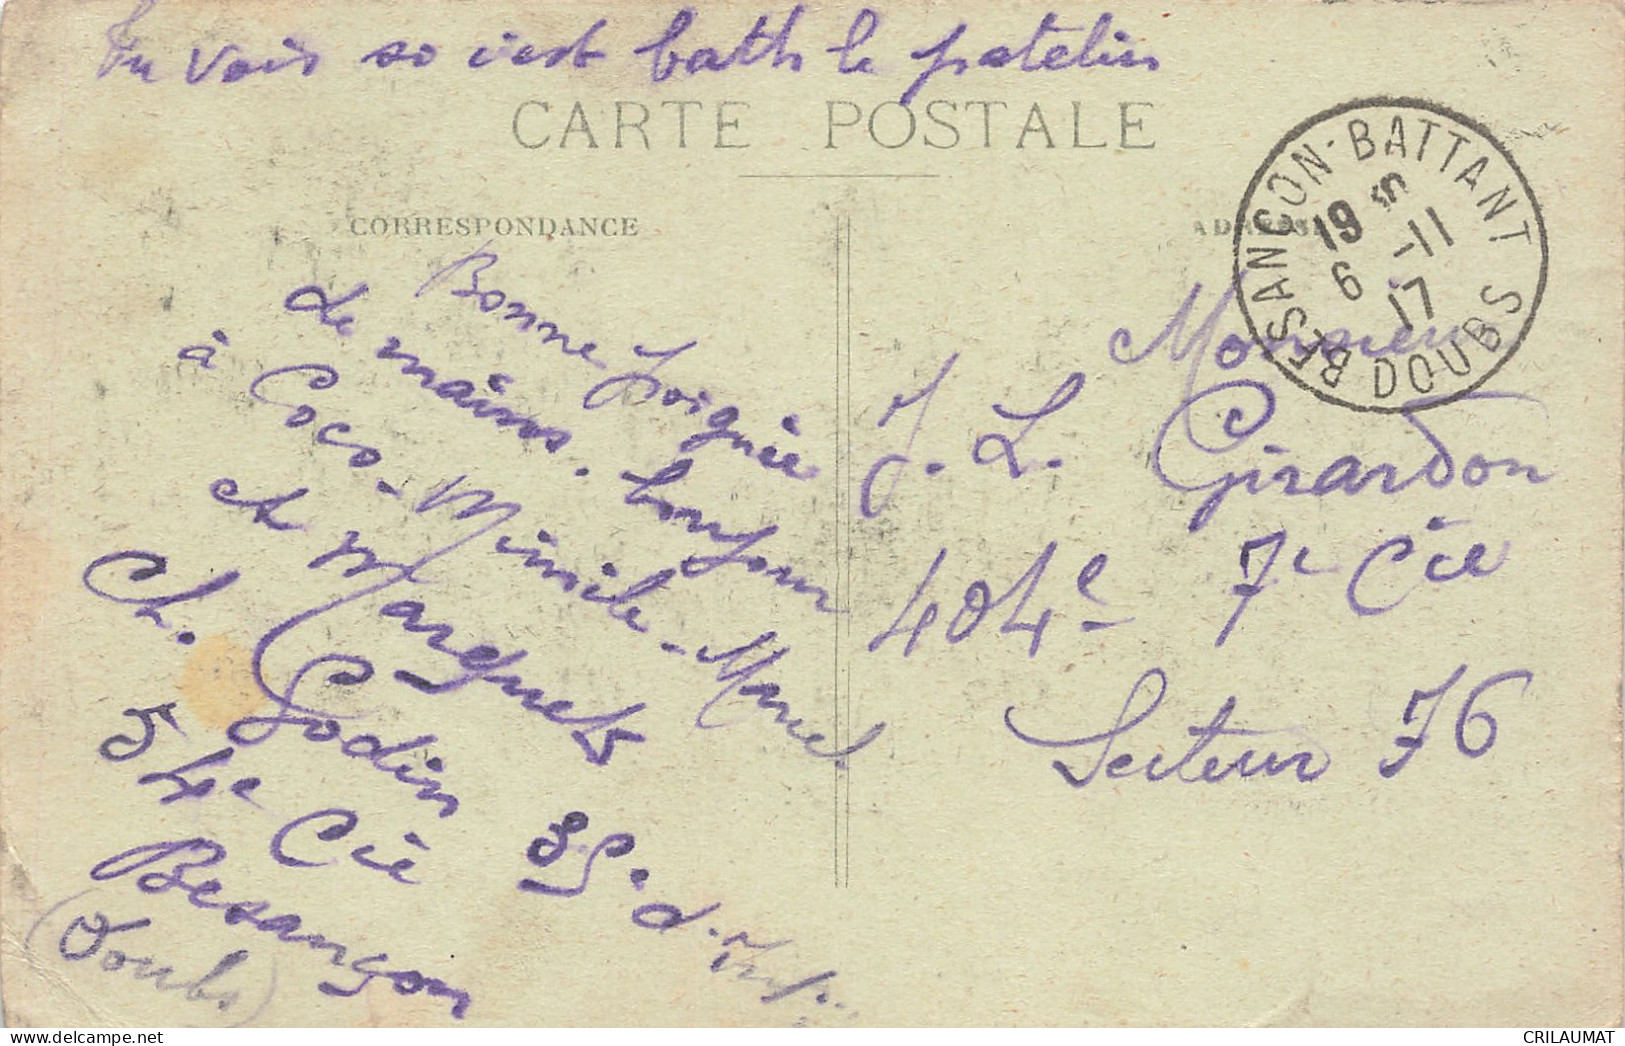 Tu vois so c'est bath le patelin
CARTE POSTALE
CORRESPONDANCE
ADRESSE
BESANÇON-BATTANT
DOUBS
19 S
6 -11
17
Bonne poignée
de mains. bonjour
à Coco-Mimile-Marcel
et Marquet
Ch. Godin
54e Cie 35e d'Inf.
Besançon
(Doubs)
Monsieur
J. L. Girardon
404e 7e Cie
Secteur 76
CRILAUMAT